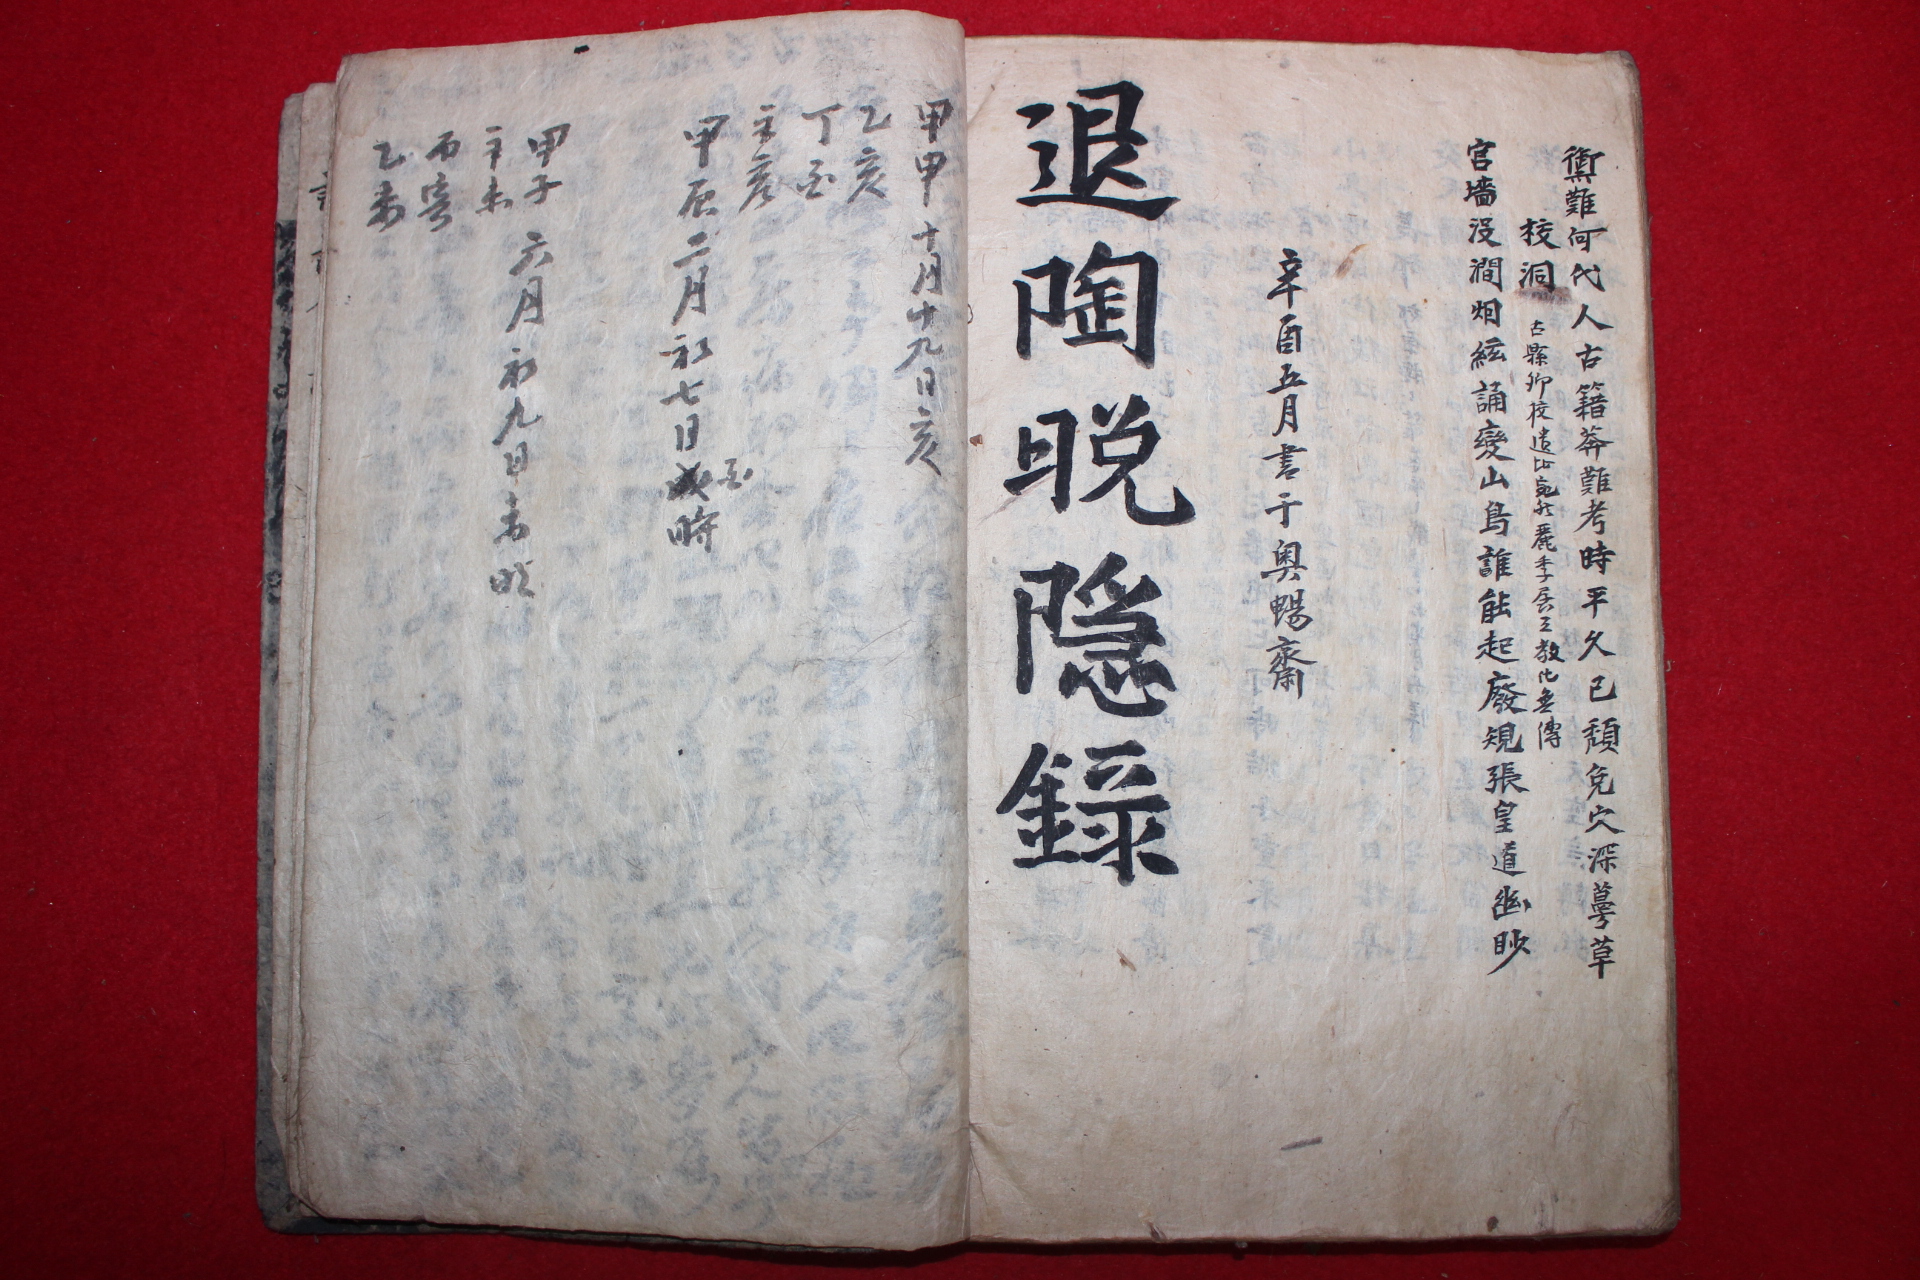 禦難何代人古籍莽難考時平久已頹兔穴深蔓草
校洞 古縣鄕校遺址宛然麗季居三敎化無傳
宮墻沒澗烟絃誦變山鳥誰能起廢規張皇道幽眇
辛酉五月書于奧暢齋
退陶晩隱錄
甲申十月十九日亥
乙亥
丁
甲辰二月初七日戌時
甲子六月初九日
辛未
丙寅
乙未